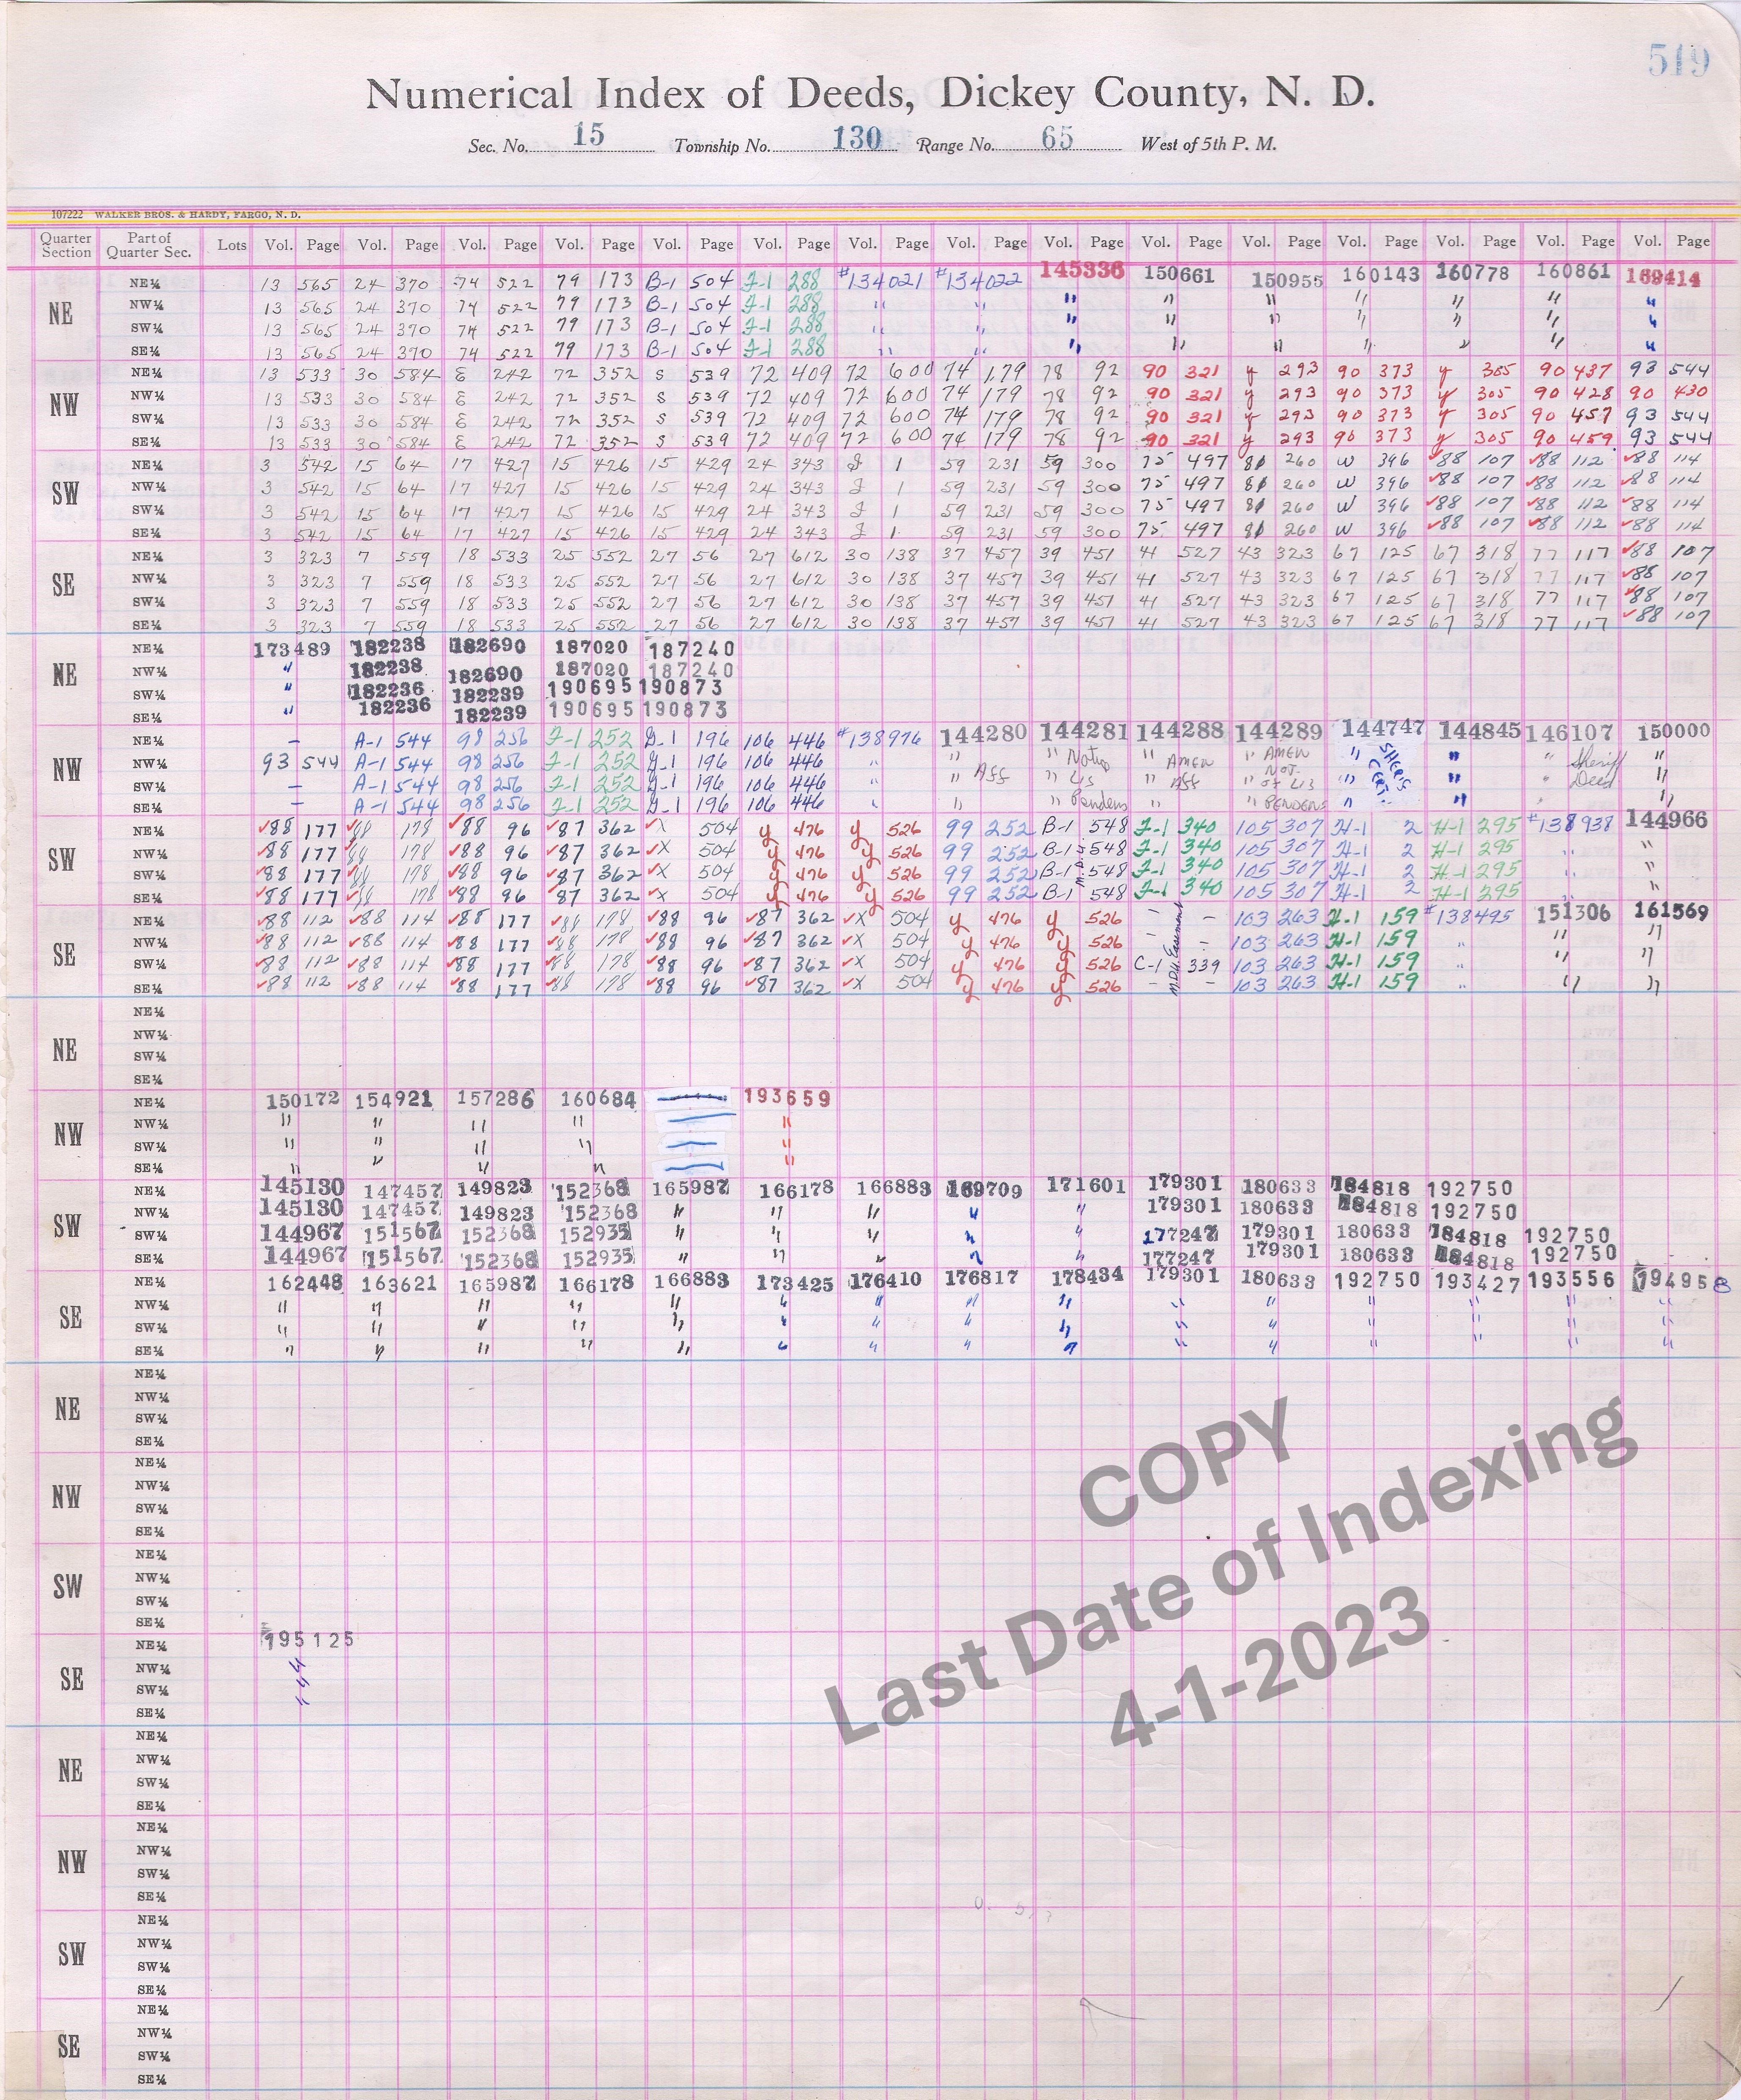 519
Numerical Index of Deeds, Dickey County, N. D.
Sec. No. 15 Township No. 130 Range No. 65 West of 5th P. M.
107222 WALKER BROS. & HARDY, FARGO, N. D.
Quarter Section Part of Quarter Sec. Lots Vol. Page Vol. Page Vol. Page Vol. Page Vol. Page Vol. Page Vol. Page Vol. Page Vol. Page Vol. Page Vol. Page Vol. Page Vol. Page Vol. Page Vol. Page
NE
NE¼ 13 565 24 370 74 522 79 173 B-1 504 F-1 288 #134021 #134022 145336 150661 150955 160143 160778 160861 169414
NW¼ 13 565 24 370 74 522 79 173 B-1 504 F-1 288 " " " " " " " " "
SW¼ 13 565 24 370 74 522 79 173 B-1 504 F-1 288 " " " " " " " "
SE¼ 13 565 24 370 74 522 79 173 B-1 504 F-1 288 " " " " " " " " "
NW
NE¼ 13 533 30 584 E 242 72 352 S 539 72 409 72 600 74 179 78 92 90 321 y 293 90 373 y 305 90 437 93 544
NW¼ 13 533 30 584 E 242 72 352 S 539 72 409 72 600 74 179 78 92 90 321 y 293 90 373 y 305 90 428 90 430
SW¼ 13 533 30 584 E 242 72 352 S 539 72 409 72 600 74 179 78 92 90 321 y 293 90 373 y 305 90 457 93 544
SE¼ 13 533 30 584 E 242 72 352 S 539 72 409 72 600 74 179 78 92 90 321 y 293 90 373 y 305 90 459 93 544
SW
NE¼ 3 542 15 64 17 427 15 426 15 429 24 343 J 1 59 231 59 300 75 497 81 260 W 396 ✓88 107 ✓88 112 ✓88 114
NW¼ 3 542 15 64 17 427 15 426 15 429 24 343 J 1 59 231 59 300 75 497 81 260 W 396 ✓88 107 ✓88 112 ✓88 114
SW¼ 3 542 15 64 17 427 15 426 15 429 24 343 J 1 59 231 59 300 75 497 81 260 W 396 ✓88 107 ✓88 112 ✓88 114
SE¼ 3 542 15 64 17 427 15 426 15 429 24 343 J 1 59 231 59 300 75 497 81 260 W 396 ✓88 107 ✓88 112 ✓88 114
SE
NE¼ 3 323 7 559 18 533 25 552 27 56 27 612 30 138 37 457 39 451 41 527 43 323 67 125 67 318 77 117 ✓88 107
NW¼ 3 323 7 559 18 533 25 552 27 56 27 612 30 138 37 457 39 451 41 527 43 323 67 125 67 318 77 117 ✓88 107
SW¼ 3 323 7 559 18 533 25 552 27 56 27 612 30 138 37 457 39 451 41 527 43 323 67 125 67 318 77 117 ✓88 107
SE¼ 3 323 7 559 18 533 25 552 27 56 27 612 30 138 37 457 39 451 41 527 43 323 67 125 67 318 77 117 ✓88 107
NE
NE¼ 173489 182238 182690 187020 187240
NW¼ " 182238 182690 187020 187240
SW¼ " 182236 182239 190695 190873
SE¼ " 182236 182239 190695 190873
NW
NE¼ — A-1 544 98 256 F-1 252 G-1 196 106 446 #138976 144280 144281 144288 144289 144747 144845 146107 150000
NW¼ 93 544 A-1 544 98 256 F-1 252 G-1 196 106 446 " " " Notice " AMEN " AMEN " SHER'S CERT. " " Sheriff "
SW¼ — A-1 544 98 256 F-1 252 G-1 196 106 446 " " Aff " Lis " Aff " NOT. of LIS " " " Deed "
SE¼ — A-1 544 98 256 F-1 252 G-1 196 106 446 " " " Pendens " " PENDENS " " " "
SW
NE¼ ✓88 177 ✓88 178 ✓88 96 ✓87 362 ✓X 504 y 476 y 526 99 252 B-1 548 F-1 340 105 307 H-1 2 H-1 295 #138938 144966
NW¼ ✓88 177 ✓88 178 ✓88 96 ✓87 362 ✓X 504 y 476 y 526 99 252 B-1 548 F-1 340 105 307 H-1 2 H-1 295 " "
SW¼ ✓88 177 ✓88 178 ✓88 96 ✓87 362 ✓X 504 y 476 y 526 99 252 B-1 548 F-1 340 105 307 H-1 2 H-1 295 " "
SE¼ ✓88 177 ✓88 178 ✓88 96 87 362 ✓X 504 y 476 y 526 99 252 B-1 548 F-1 340 105 307 H-1 2 H-1 295 " "
SE
NE¼ ✓88 112 ✓88 114 ✓88 177 ✓88 178 ✓88 96 ✓87 362 ✓X 504 y 476 y 526 — — 103 263 H-1 159 #138495 151306 161569
NW¼ ✓88 112 ✓88 114 ✓88 177 ✓88 178 ✓88 96 ✓87 362 ✓X 504 y 476 y 526 — — 103 263 H-1 159 " " "
SW¼ ✓88 112 ✓88 114 ✓88 177 ✓88 178 ✓88 96 ✓87 362 ✓X 504 y 476 y 526 C-1 339 103 263 H-1 159 " " "
SE¼ ✓88 112 ✓88 114 ✓88 177 ✓88 178 ✓88 96 ✓87 362 ✓X 504 y 476 y 526 — — 103 263 H-1 159 " " "
M.D.U. Easement
NE
NE¼
NW¼
SW¼
SE¼
NW
NE¼ 150172 154921 157286 160684 193659
NW¼ " " " " "
SW¼ " " " " "
SE¼ " " " " "
SW
NE¼ 145130 147457 149823 152368 165987 166178 166883 169709 171601 179301 180633 184818 192750
NW¼ 145130 147457 149823 152368 " " " " " 179301 180633 184818 192750
SW¼ 144967 151567 152368 152935 " " " " " 177247 179301 180633 184818 192750
SE¼ 144967 151567 152368 152935 " " " " " 177247 179301 180633 184818 192750
SE
NE¼ 162448 163621 165987 166178 166883 173425 176410 176817 178434 179301 180633 192750 193427 193556 194958
NW¼ " " " " " " " " " " " " " " "
SW¼ " " " " " " " " " " " " " " "
SE¼ " " " " " " " " " " " " " " "
NE
NE¼
NW¼
SW¼
SE¼
NW
NE¼
NW¼
SW¼
SE¼
SW
NE¼
NW¼
SW¼
SE¼
SE
NE¼ 195125
NW¼ "
SW¼ "
SE¼ "
COPY
Last Date of Indexing
4-1-2023
NE
NE¼
NW¼
SW¼
SE¼
NW
NE¼
NW¼
SW¼
SE¼
SW
NE¼
NW¼
SW¼
SE¼
SE
NE¼
NW¼
SW¼
SE¼